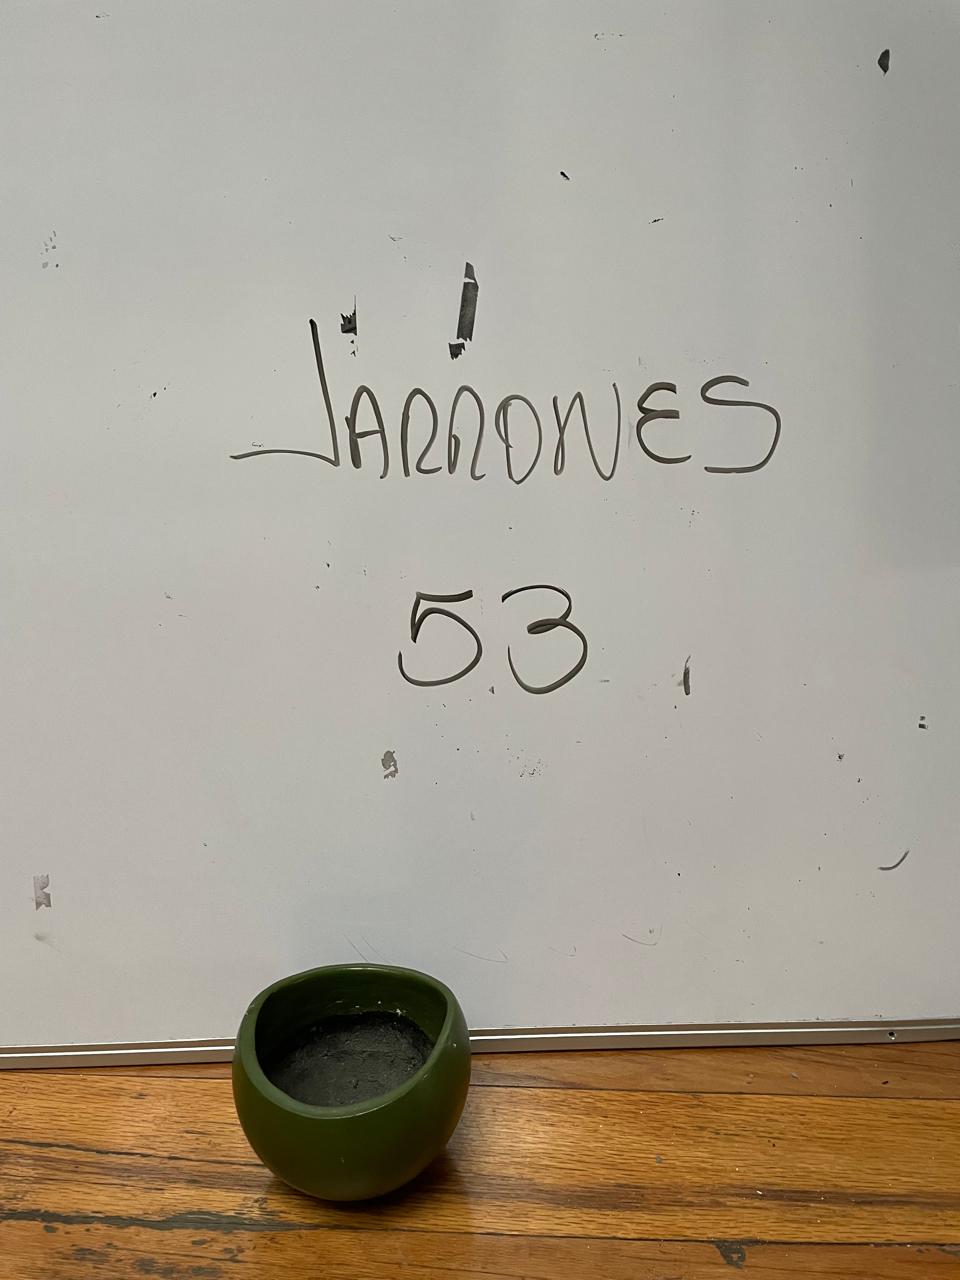 JARRONES
53